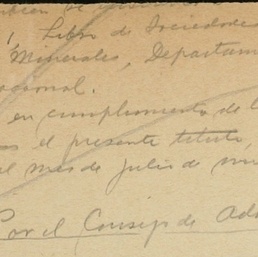 Libro de Sociedades
Minerales, Departam
cional.
en cumplimiento de l
el presente titulo,
el mes de julio de mi
Por el Consejo de Ad